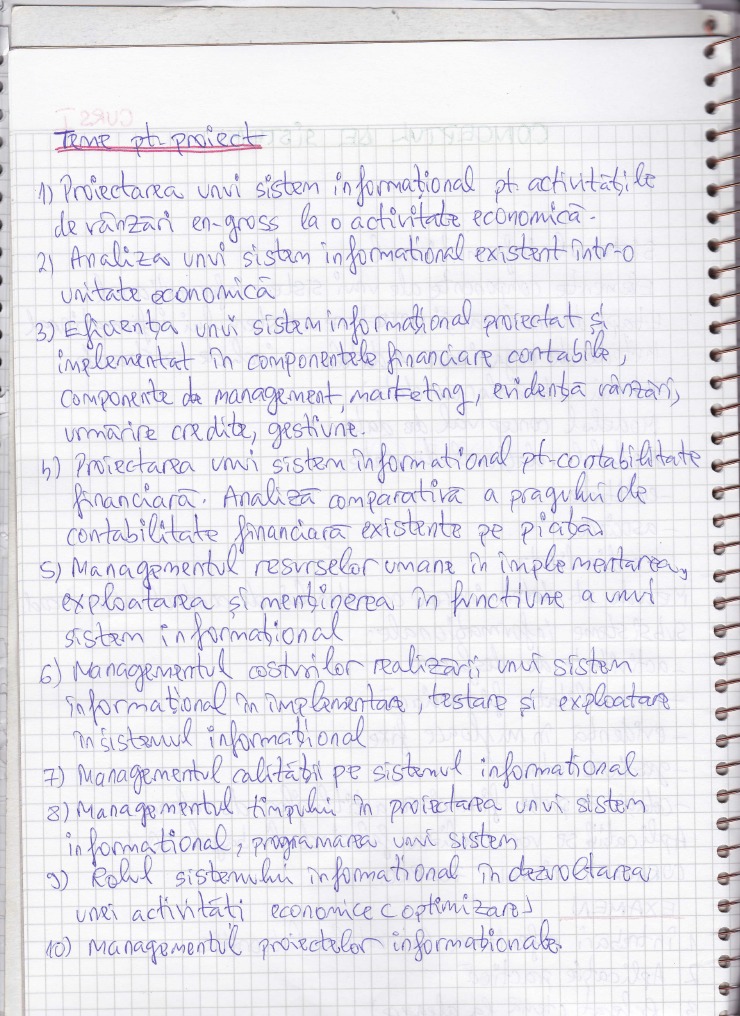 Teme pt. proiect
1) Proiectarea unui sistem informațional pt. activitățile
de vânzări en-gross la o activitate economică.
2) Analiza unui sistem informational existent într-o
unitate economică
3) Eficiența unui sistem informațional proiectat și
implementat în componentele financiare contabile,
componente de management, marketing, evidența vânzări,
urmărire credite, gestiune.
4) Proiectarea unui sistem informational pt. contabilitate
financiară. Analiză comparativă a pragului de
contabilitate financiară existente pe piață.
5) Managementul resurselor umane în implementarea,
exploatarea și menținerea în funcțiune a unui
sistem informațional
6) Managementul costurilor realizării unui sistem
informațional în implementare, testare și exploatare
în sistemul informațional
7) Managementul calității pe sistemul informațional
8) Managementul timpului în proiectarea unui sistem
informațional, programarea unui sistem
9) Rolul sistemului informațional în dezvoltarea
unei activități economice (optimizare)
10) Managementul proiectelor informaționale.